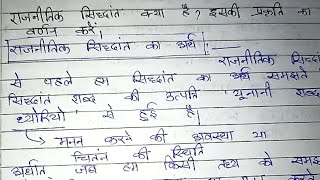 राजनीतिक सिद्धांत क्या है? इसकी प्रकृति का
वर्णन करें।
राजनीतिक सिद्धांत का अर्थ :—
राजनीतिक सिद्धांत
से पहले हम सिद्धांत का अर्थ समझते
सिद्धांत शब्द की उत्पति 'यूनानी शब्द
थ्योरियो' से हुई है।
मनन करने की अवस्था या
चिंतन की स्थिति
अर्थात जब हम किसी तथ्य को समझ